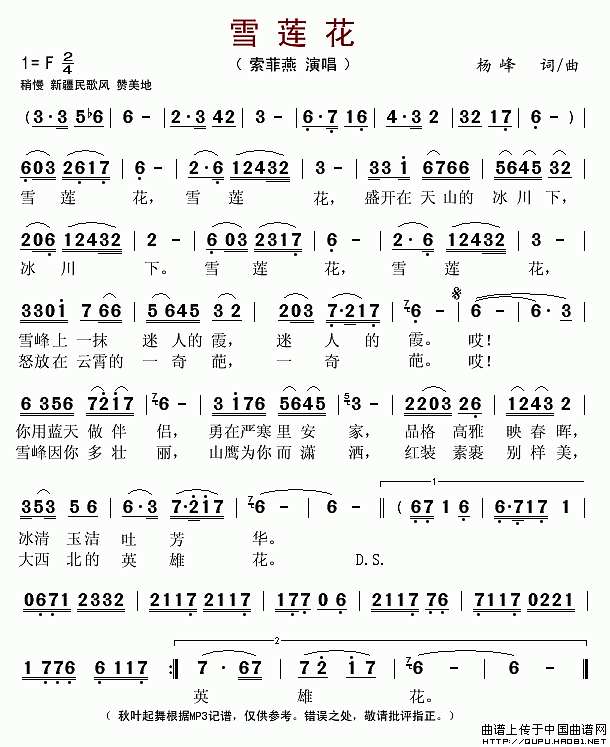 雪 莲 花
1= F 2/4 （ 索菲燕 演唱 ） 杨 峰 词/曲
稍慢 新疆民歌风 赞美地
雪 莲 花， 雪 莲 花， 盛开在 天山的 冰川 下，
冰 川 下。 雪 莲 花， 雪 莲 花，
雪峰上 一抹 迷 人的 霞， 迷 人 的 霞。 哎！
怒放在 云霄的 一 奇 葩， 一 奇 葩。 哎！
你用蓝天 做 伴 侣， 勇在严寒 里 安 家， 品格 高雅 映 春 晖，
雪峰因你 多 壮 丽， 山鹰为你 而 潇 洒， 红装 素裹 别 样 美，
冰清 玉洁 吐 芳 华。
大西 北的 英 雄 花。 D.S.
英 雄 花。
（ 秋叶起舞根据MP3记谱，仅供参考。错误之处，敬请批评指正。）
曲谱上传于中国曲谱网
HTTP://QUPU.HAO81.NET